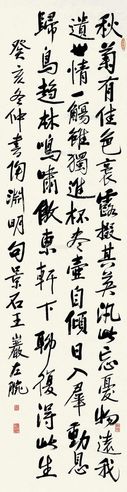 秋菊有佳色裛露掇其英汎此忘憂物遠我
遺世情一觴雖獨進杯盡壺自傾日入羣動息
歸鳥趨林鳴嘯傲東軒下聊復得此生
癸亥冬仲書陶淵明句景石王巖左腕